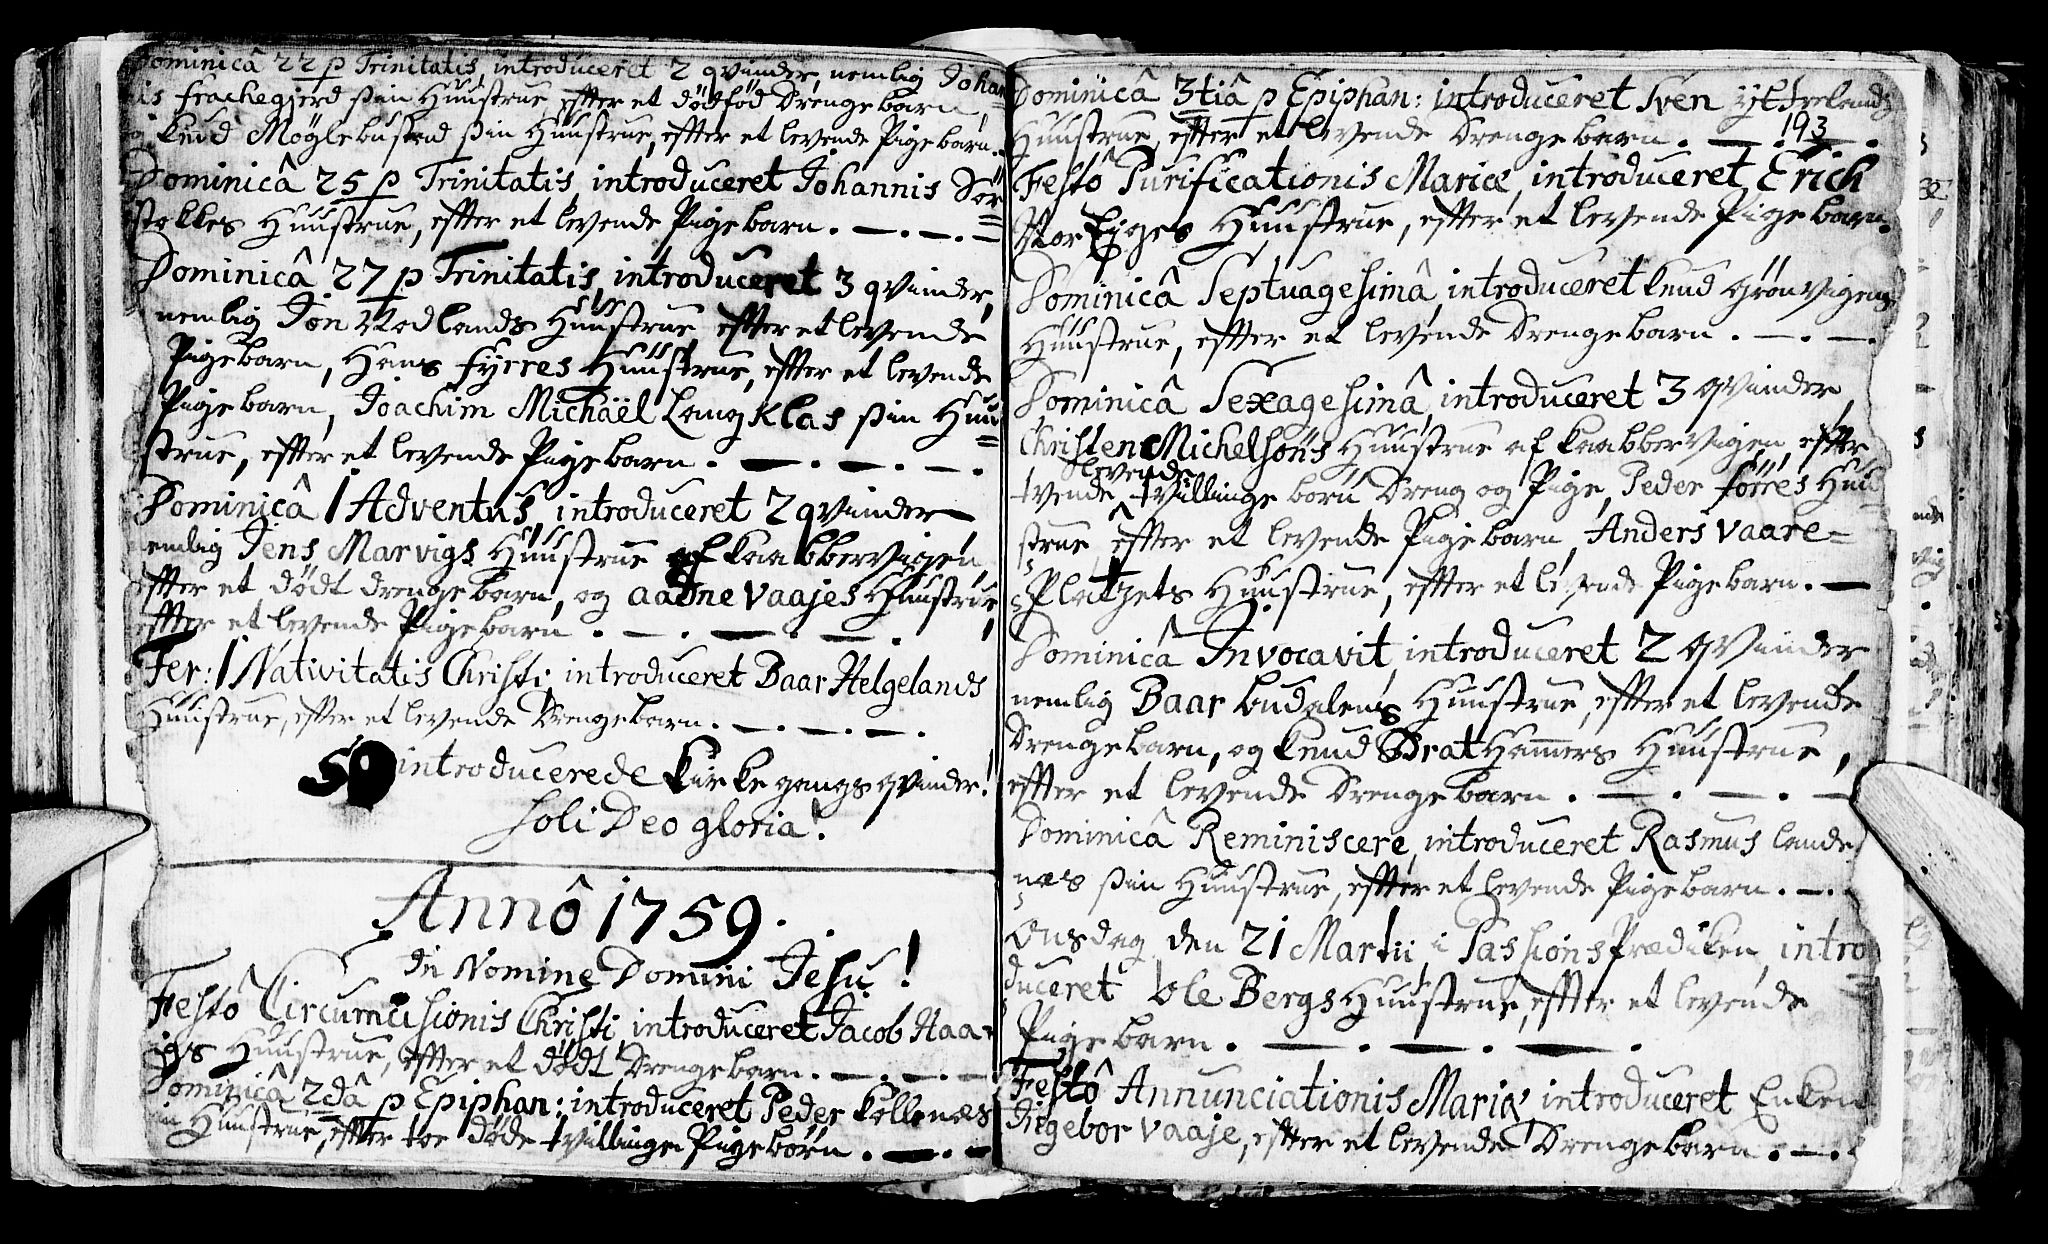 Dominicâ 22 p Trinitatis, introduceret 2 qvinder, nemlig Johan=
is Frachegjerd sin Huustrue efter et dödfød Drengebarn,
og Knud Møglebustad sin Huustrue, efter et levende Pigebarn.
Dominicâ 25 p Trinitatis, introduceret Johannis Sör=
stokkes Huustrue, efter et levende Pigebarn. —. —. —
Dominicâ 27 p Trinitatis, introduceret 3 qvinder,
nemlig Jon Rodlands Huustrue, efter et levende
Pigebarn, Hans Fyrres Huustrue, efter et levende
Pigebarn, Joachim Michaël Langklas sin Huu=
strue, efter et levende Pigebarn. —. —. —.
Dominicâ 1 Adventus, introduceret 2 qvinder
nemlig Jens Marvigs Huustrue af Kaabbervigen
efter et dödt drengebarn, og Aadne Vaajes Huustrue,
efter et levende Pigebarn. —. —. —.
Fer: 1 Nativitatis Christi introduceret Baar Helgelands
Huustrue, efter et levende Drengebarn. —. —. —.
50 introducerede Kirkegangs qvinder!
Soli Deo gloria!
Annô 1759.
In Nomine Domini Jesu!
Festô Circumcisionis Christi, introduceret Jacob Haa=
igs Huustrue, efter et dödt Drengebarn. —. —. —
Dominicâ 2dâ p Epiphan: introduceret Peder Kollenæs
sin Huustrue, efter toe døde tvillinge Pigebørn. —. —
Dominicâ 3tiâ p Epiphan: introduceret Sven Ytreland
193
Huustrue, efter et levende Drengebarn. —. —.
Festô Purificationis Mariæ, introduceret Erich
Stor Eyges Huustrue, efter et levende Pigebarn.
Dominicâ Septuagesimâ, introduceret Knud Grönvigens
Huustrue, efter et levende Drengebarn. —. —.
Dominicâ Sexagesimâ, introduceret 3 qvinder,
Christen Michelsöns Huustrue af Kaabbervigen, efter
levende
tvende tvillinge börn Dreng og Pige, Peder Förres Huu=
strue, efter et levende Pigebarn, Anders Vaare=
Platzets Huustrue, efter et levende Pigebarn. —
Dominicâ Invocavit, introduceret 2 qvinder
nemlig Baar Budalens Huustrue, efter et levende
Drengebarn, og Knud Brathammers Huustrue,
efter et levende Drengebarn. —. —. —
Dominicâ Reminiscere, introduceret Rasmus Lande=
næs sin Huustrue, efter et levende Pigebarn. —.
Onsdag den 21 Martii i Passions Prædiken, intro=
duceret Ole Bergs Huustrue, efter et levende
Pigebarn. —. —. —.
Festô Annunciationis Mariæ, introduceret Enken
Ingebor Vaaje, efter et levende Drengebarn. —.